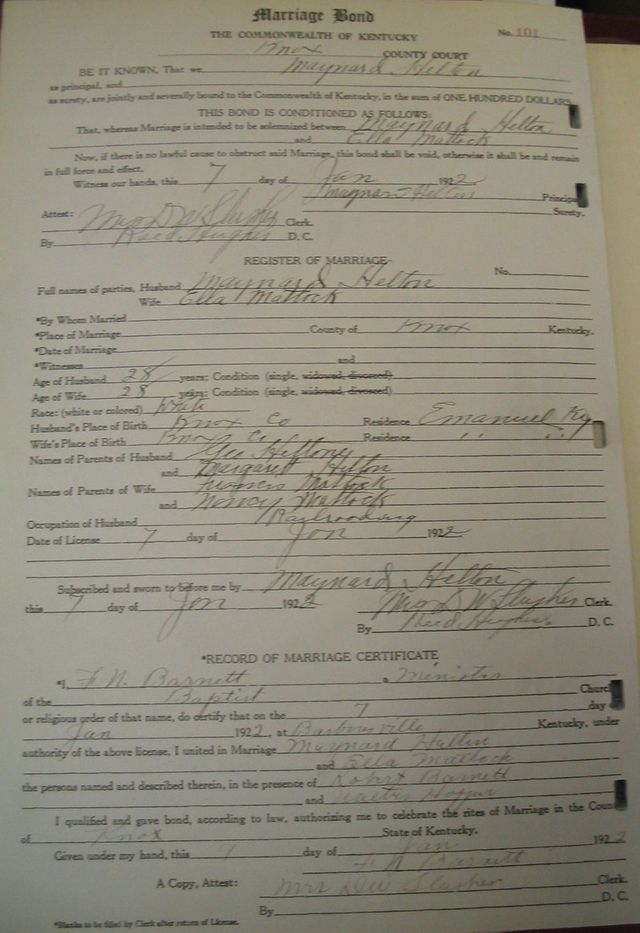 Marriage Bond
THE COMMONWEALTH OF KENTUCKY
No. 101
Knox COUNTY COURT
BE IT KNOWN, That we Maynard Helton
as principal, and
as surety, are jointly and severally bound to the Commonwealth of Kentucky, in the sum of ONE HUNDRED DOLLARS
THIS BOND IS CONDITIONED AS FOLLOWS:
That, whereas Marriage is intended to be solemnized between Maynard Helton
and Ella Mattock
Now, if there is no lawful cause to obstruct said Marriage, this bond shall be void, otherwise it shall be and remain
in full force and effect.
Witness our hands, this 7 day of Jan 1922
Maynard Helton Principal
Surety.
Attest: Mrs D W Slusher Clerk.
By Reed Hughes D. C.
REGISTER OF MARRIAGE
No.
Full names of parties, Husband Maynard Helton
Wife Ella Mattock
*By Whom Married
*Place of Marriage County of Knox Kentucky.
*Date of Marriage
*Witnesses and
Age of Husband 28 years; Condition (single, widowed, divorced)
Age of Wife 28 years; Condition (single, widowed, divorced)
Race: (white or colored) White
Husband's Place of Birth Knox Co Residence Emanuel Ky
Wife's Place of Birth Knox Co Residence " "
Names of Parents of Husband Geo Helton
and Margaret Helton
Names of Parents of Wife Francis Mattock
and Nancy Mattock
Occupation of Husband Railroading
Date of License 7 day of Jan 1922
Subscribed and sworn to before me by Maynard Helton
this 7 day of Jan 1922 Mrs D W Slusher Clerk
By Reed Hughes D. C.
*RECORD OF MARRIAGE CERTIFICATE
*I, F. N. Barnett a Minister
of the Baptist Church
or religious order of that name, do certify that on the 7 day
Jan 1922, at Barbourville Kentucky, under
authority of the above license, I united in Marriage Maynard Helton
and Ella Mattock
the persons named and described therein, in the presence of Robert Barnett
and Walter
I qualified and gave bond, according to law, authorizing me to celebrate the rites of Marriage in the Coun
of Knox State of Kentucky.
Given under my hand, this 7 day of Jan 1922
F N Barnett
A Copy, Attest: Mrs D W Slusher Clerk.
By D. C.
*Blanks to be filled by Clerk after return of License.